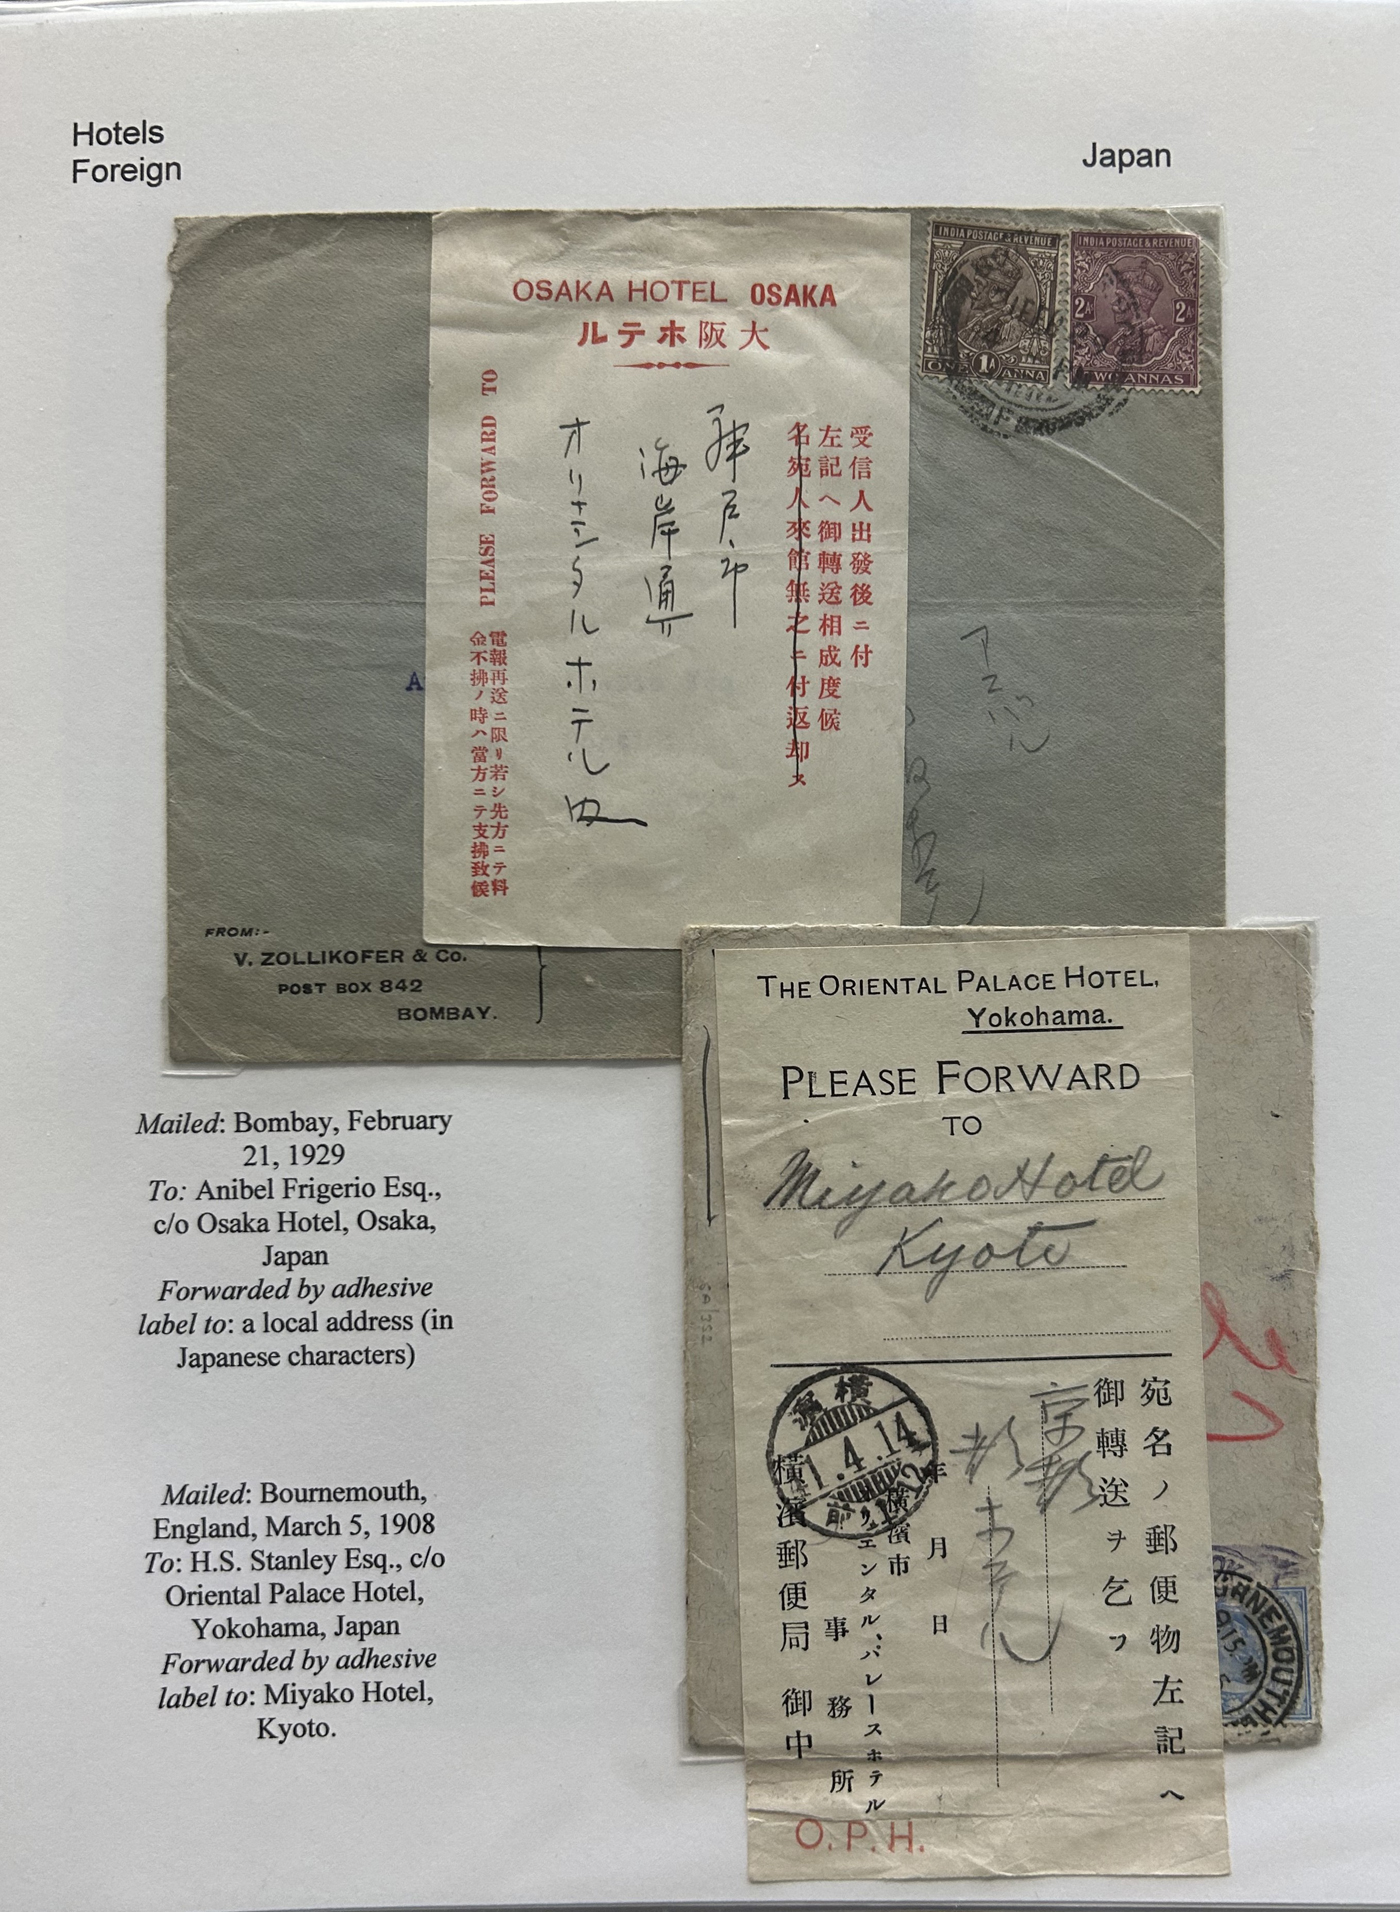 Hotels
Foreign
Japan
OSAKA HOTEL OSAKA
ルテホ阪大
PLEASE FORWARD TO
受信人出發後ニ付
左記へ御轉送相成度候
名宛人來館無之ニ付返却ス
神戸市
海岸通
オリエンタルホテル内
電報再送ニ限リ若シ先方ニテ料
金不拂ノ時ハ當方ニテ支拂致候
INDIA POSTAGE & REVENUE
ONE 1A ANNA
INDIA POSTAGE & REVENUE
2A 2A
TWO ANNAS
A
FROM:-
V. ZOLLIKOFER & Co.
POST BOX 842
BOMBAY.
THE ORIENTAL PALACE HOTEL,
Yokohama.
PLEASE FORWARD
TO
Miyako Hotel
Kyoto
宛名ノ郵便物左記へ
御轉送ヲ乞フ
京都
都ホテル
年 月 日
横濱市
オリエンタル、パレースホテル
事務所
横濱郵便局 御中
横濱
41.4.14
前
O.P.H.
RNEMOUTH
Mailed: Bombay, February
21, 1929
To: Anibel Frigerio Esq.,
c/o Osaka Hotel, Osaka,
Japan
Forwarded by adhesive
label to: a local address (in
Japanese characters)
Mailed: Bournemouth,
England, March 5, 1908
To: H.S. Stanley Esq., c/o
Oriental Palace Hotel,
Yokohama, Japan
Forwarded by adhesive
label to: Miyako Hotel,
Kyoto.